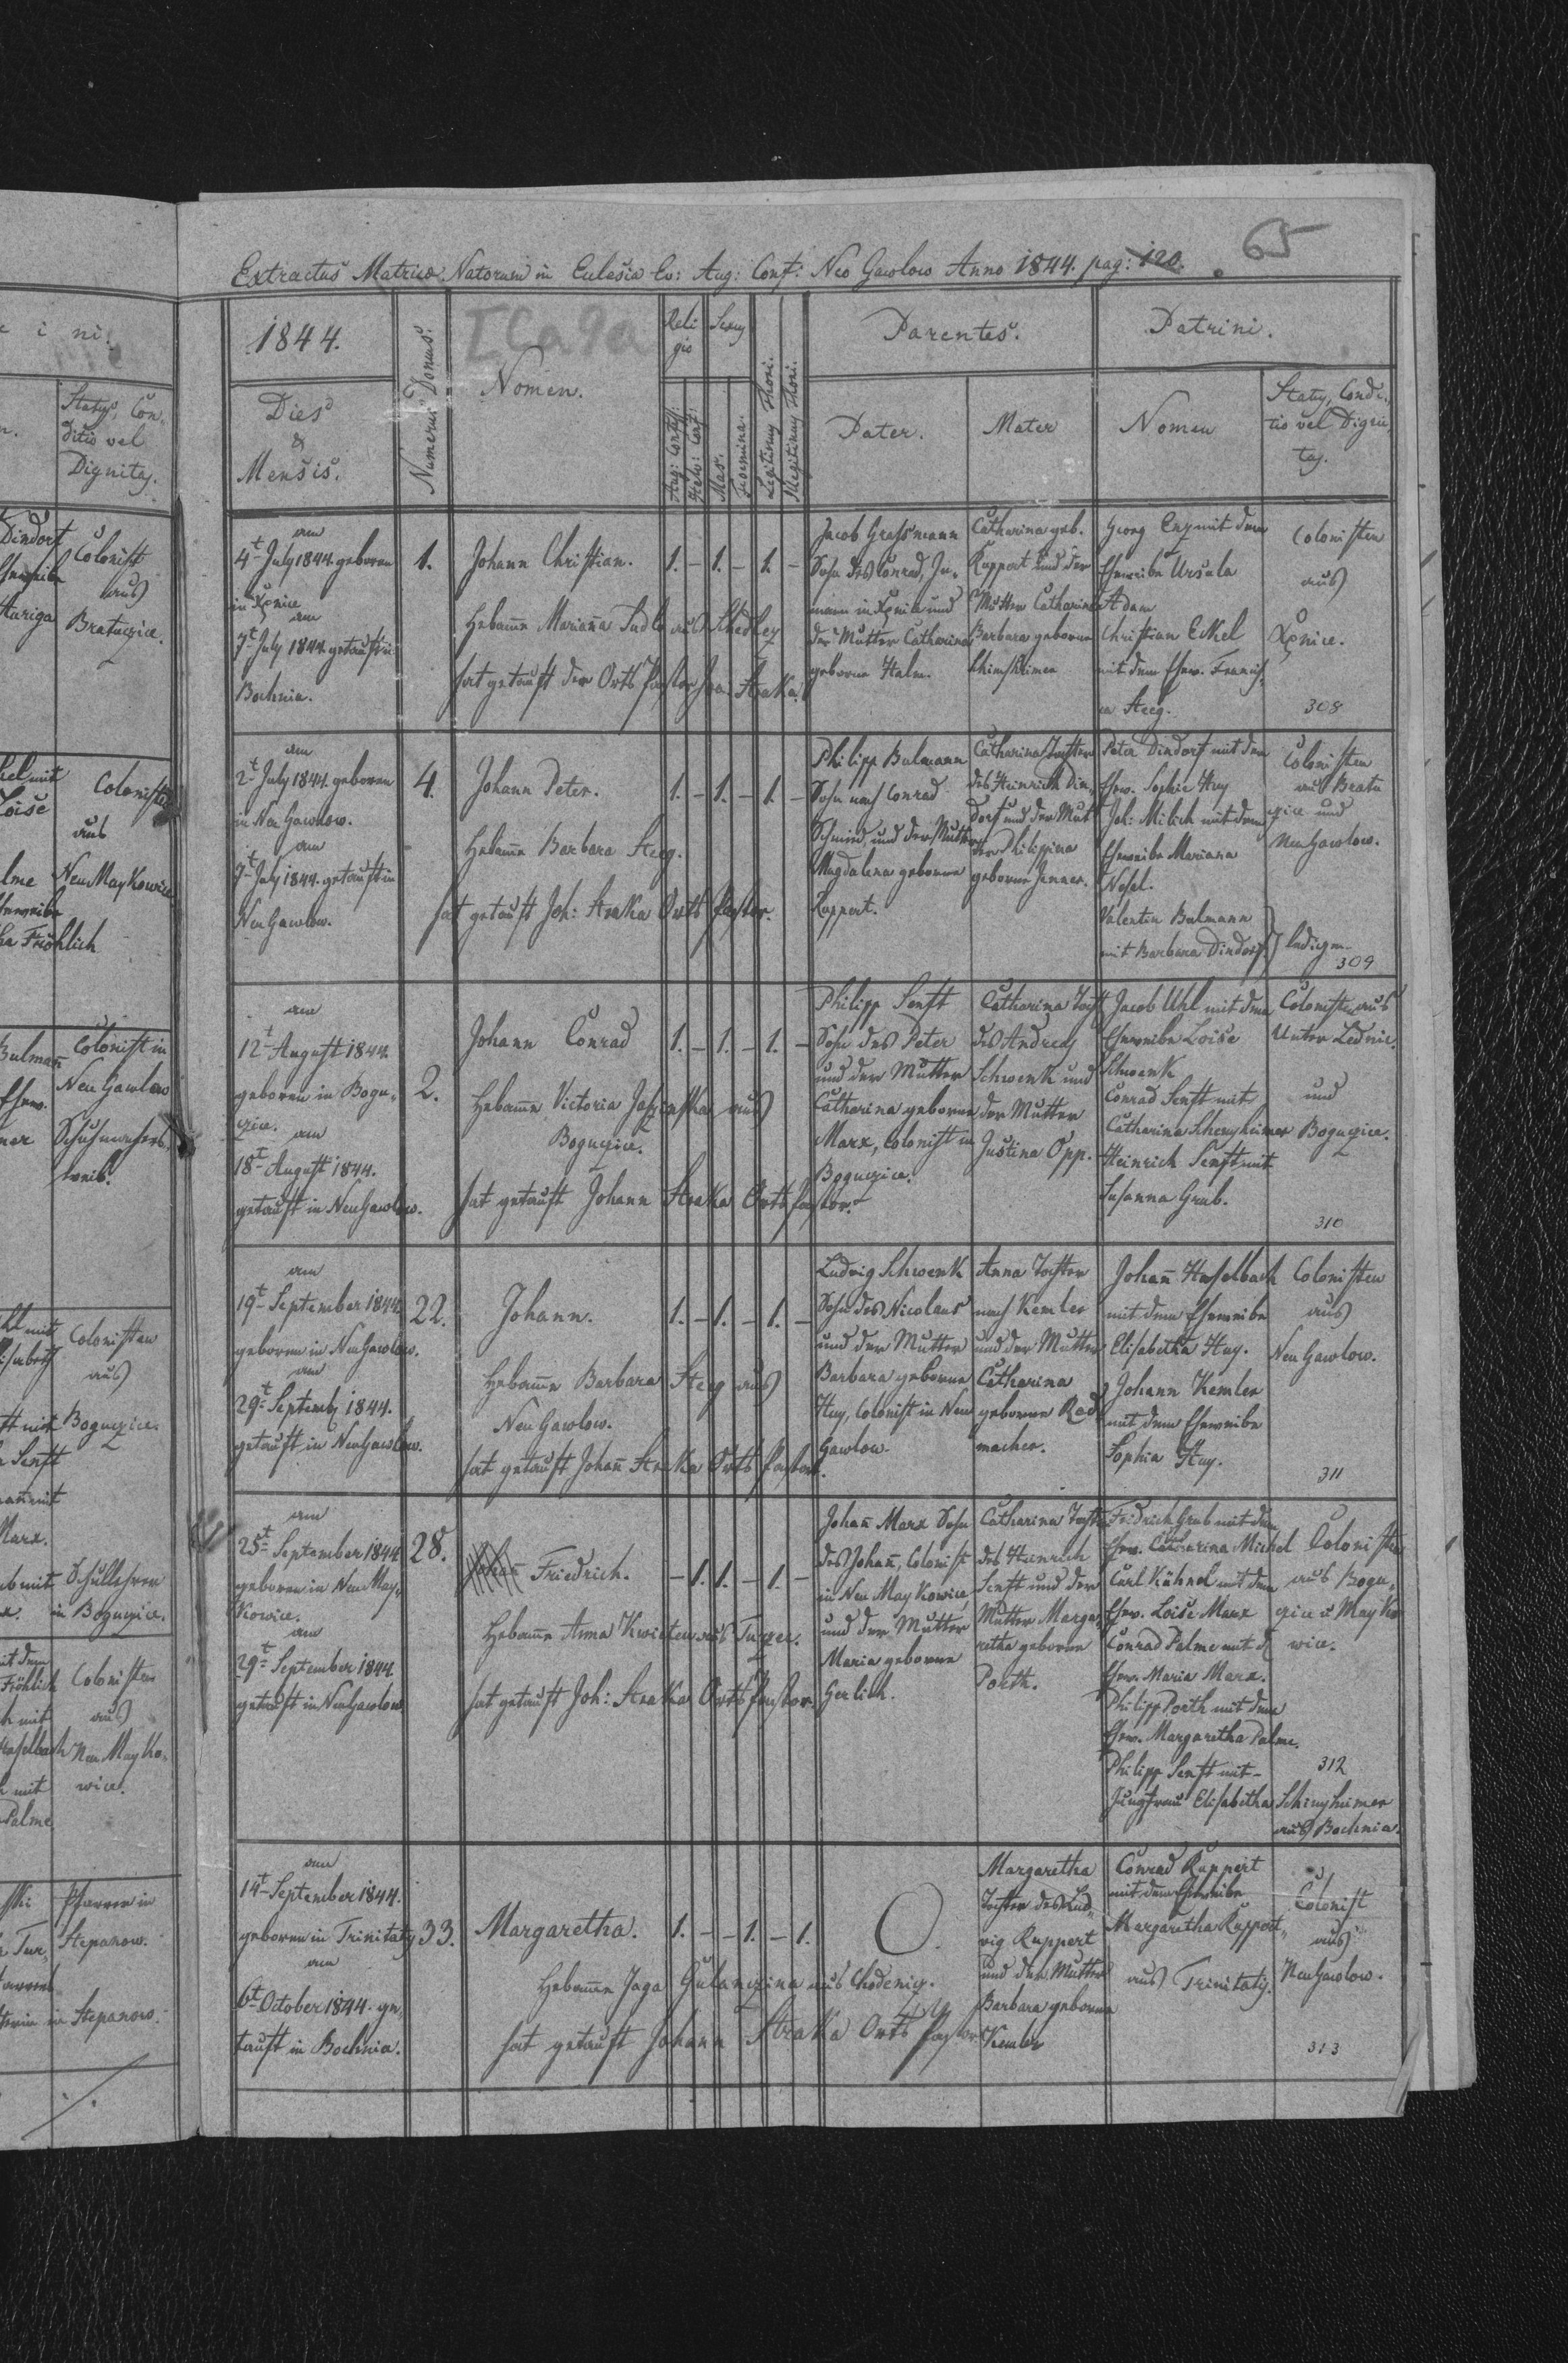 Extractus Matricae Natorum in Eclesia Ev: Aug: Conf: Neo Gawlow Anno 1844. pag: 120.
65
1844.
Dies
&
Mensis.
Numerus Domus.
ICa9a
Nomen.
Reli
gio
Sexus
Aug: Confess:
Helv: Conf:
Mas.
Foemina.
Legitimus Thori.
Illegitimus Thori.
Parentes.
Pater.
Mater
Patrini.
Nomen
Status, Condi-
tio vel Digni-
tas.
am
4t July 1844. geboren
in Xçnice
am
7t July 1844. getauft in
Bochnia.
1.
Johann Christian.
1. - 1. - 1. -
Hebam̄e Marian̄a Sadlo aus
hat getauft der Orts Pastor Joa. Straka.
Jacob Grassmann
Sohn des Conrad, In-
mann in Xçnice und
der Mutter Catharina
geborne Halm.
Catharina geb.
Ruppert und der
Mutter Catharina
Barbara geborne
Georg Enz mit dem
Eheweibe Ursula
Adam
Christian Eckel
mit dem Ehew. Francis-
ca Steeg.
Colonisten
aus
Xçnice.
308
am
2t July 1844. geboren
in Neu Gawlow.
am
7t July 1844. getauft in
Neu Gawlow.
4.
Johann Peter.
1. - 1. - 1. -
Hebam̄e Barbara Steeg.
hat getauft Joh: Straka Orts Pastor.
Philipp Bulmann
Sohn nach Conrad
Schmied, und der Mutter
Magdalena geborne
Ruppert.
Catharina Tochter
des Heinrich Din-
dorf und der Mut-
ter Philippina
geborne Jenner.
Peter Dindorf mit dem
Ehew. Sophie Huy
Joh: Milich mit dem
Eheweibe Mariana
Nosel.
Valentin Bulmann
mit Barbara Dindorf.
Colonisten
aus Bratu
czice und
Neu Gawlow.
ledigen
309
am
12t August 1844.
geboren in Bogu-
czice.
am
18t August 1844.
getauft in Neu Gawlow.
2.
Johann Conrad
1. - 1. - 1. -
Hebam̄e Victoria Jaszinska aus
Boguczice.
hat getauft Johann Straka Orts Pastor.
Philipp Senft
Sohn des Peter
und der Mutter
Catharina geborne
Marx, Colonist in
Boguczice.
Catharina Tocht
des Andreas
Schwenk und
der Mutter
Justina Opp.
Jacob Uhl mit dem
Eheweibe Loise
Schwenk
Conrad Senft mit
Catharina Schensheimer
Heinrich Senft mit
Susanna Grub.
Colonisten aus
Unter Lednic.
und
Boguczice.
310
am
19t September 1844.
geboren in Neu Gawlow.
am
29t Septemb 1844.
getauft in Neu Gawlow.
22.
Johann.
1. - 1. - 1. -
Hebam̄e Barbara Steg aus
Neu Gawlow.
hat getauft Johan̄ Straka Orts Pastor.
Ludwig Schwenk
Sohn des Nicolaus
und der Mutter
Barbara geborne
Huy, Colonist in Neu
Gawlow.
Anna Tochter
nach Kemler
und der Mutter
Catharina
geborne Rad
macher.
Johan̄ Haselbach
mit dem Eheweibe
Elisabetha Huy.
Johann Kemler
mit dem Eheweibe
Sophia Huy.
Colonisten
aus
Neu Gawlow.
311
am
25t September 1844
geboren in Neu May-
kowice.
am
29t September 1844
getauft in Neu Gawlow
28.
Friedrich.
- 1. 1. - 1. -
Hebam̄e Anna Kwieten aus
hat getauft Joh: Straka Orts Pastor.
Johan̄ Marx Sohn
des Johan̄, Colonist
in Neu Maykowice,
und der Mutter
Maria geborne
Gerlich.
Catharina Tochter
des Heinrich
Senft und der
Mutter Marga-
retha geborne
Porth.
Fridrich Grub mit dem
Ehew. Catharina Michel
Carl Kühnel mit dem
Ehew. Loise Marx
Conrad Palme mit d
Ehew. Maria Marx.
Philipp Porth mit dem
Ehew. Margaretha Palme.
Philipp Senft mit
Jungfrau Elisabetha
Colonisten
aus Bogu-
czice u Mayko
wice.
312
Schinsheimer
aus Bochnia.
am
14t September 1844.
geboren in Trinitatis
am
6t October 1844. ge-
tauft in Bochnia.
33.
Margaretha.
1. - - 1. - 1.
Hebam̄e Jaga Gulanczina aus Chodenic.
hat getauft Johann Straka Orts Pastor
O.
Margaretha
Tochter des Lud-
wig Ruppert
und der Mutter
Barbara geborne
Kemler
Conrad Ruppert
mit dem Eheweibe
Margaretha Ruppert
aus Trinitatis.
Colonist
aus
Neu Gawlow.
313
ni.
Status, Con-
ditio vel
Dignitas.
Dindorf
Colonist
aus
Bratuczice.
Colonisten
aus
Neu Maykowice
Fröhlich
Colonist in
Neu Gawlow
Colonisten
aus
Boguczice.
Senft
Marx.
Schullehrer
in Boguczice.
Fröhlich
Colonisten
aus
Neu Mayko-
wice.
Palme
Pfarrer in
Stepanow.
in Stepanow.